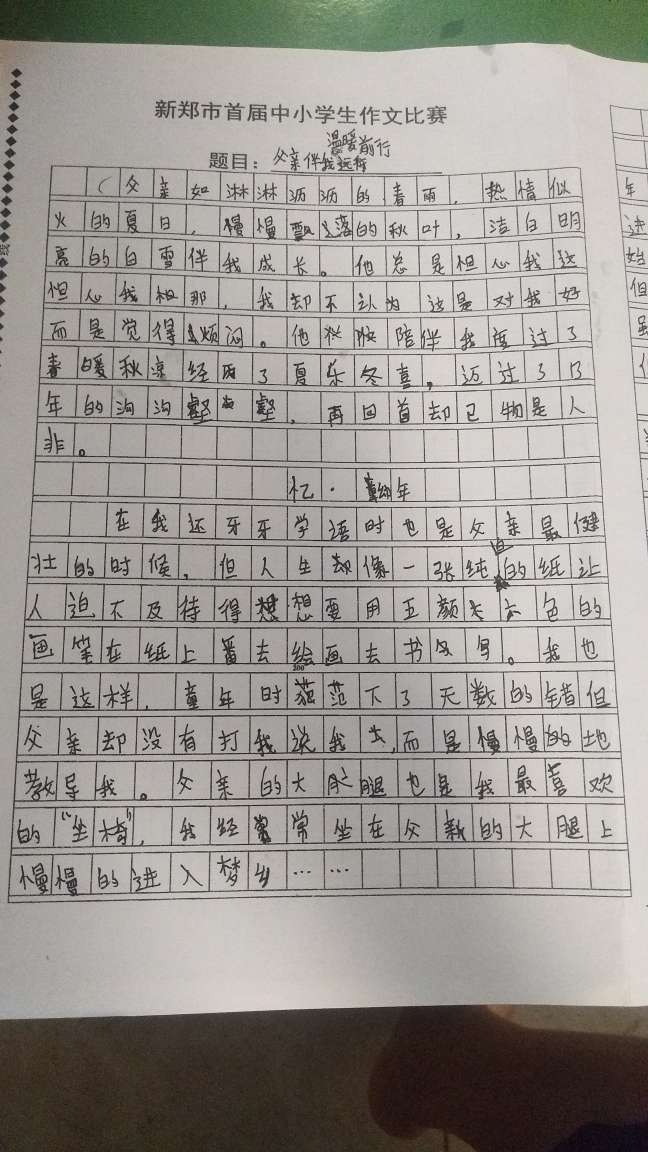 新郑市首届中小学生作文比赛
温暖前行
题目：父亲伴我远行
父亲如淋淋沥沥的春雨，热情似
火的夏日，慢慢飘落的秋叶，洁白明
亮的白雪伴我成长。他总是怛心我这
怛心我和那，我却不认为这是对我好
而是觉得烦闷。他陪伴我度过了
春暖秋凉经历了夏乐冬喜，迈过了
年的沟沟壑壑，再回首却已物是人
非。
忆·幼年
在我还牙牙学语时也是父亲最健
壮的时候，但人生却像一张纯白的纸让
人迫不及待得想要用五颜六色的
画笔在纸上去绘画去书写。我也
是这样，童年时犯下了无数的错但
父亲却没有打我说我，而是慢慢的地
教导我。父亲的大腿也是我最喜欢
的“坐椅”，我经常坐在父亲的大腿上
慢慢的进入梦乡……
年
进
始
但